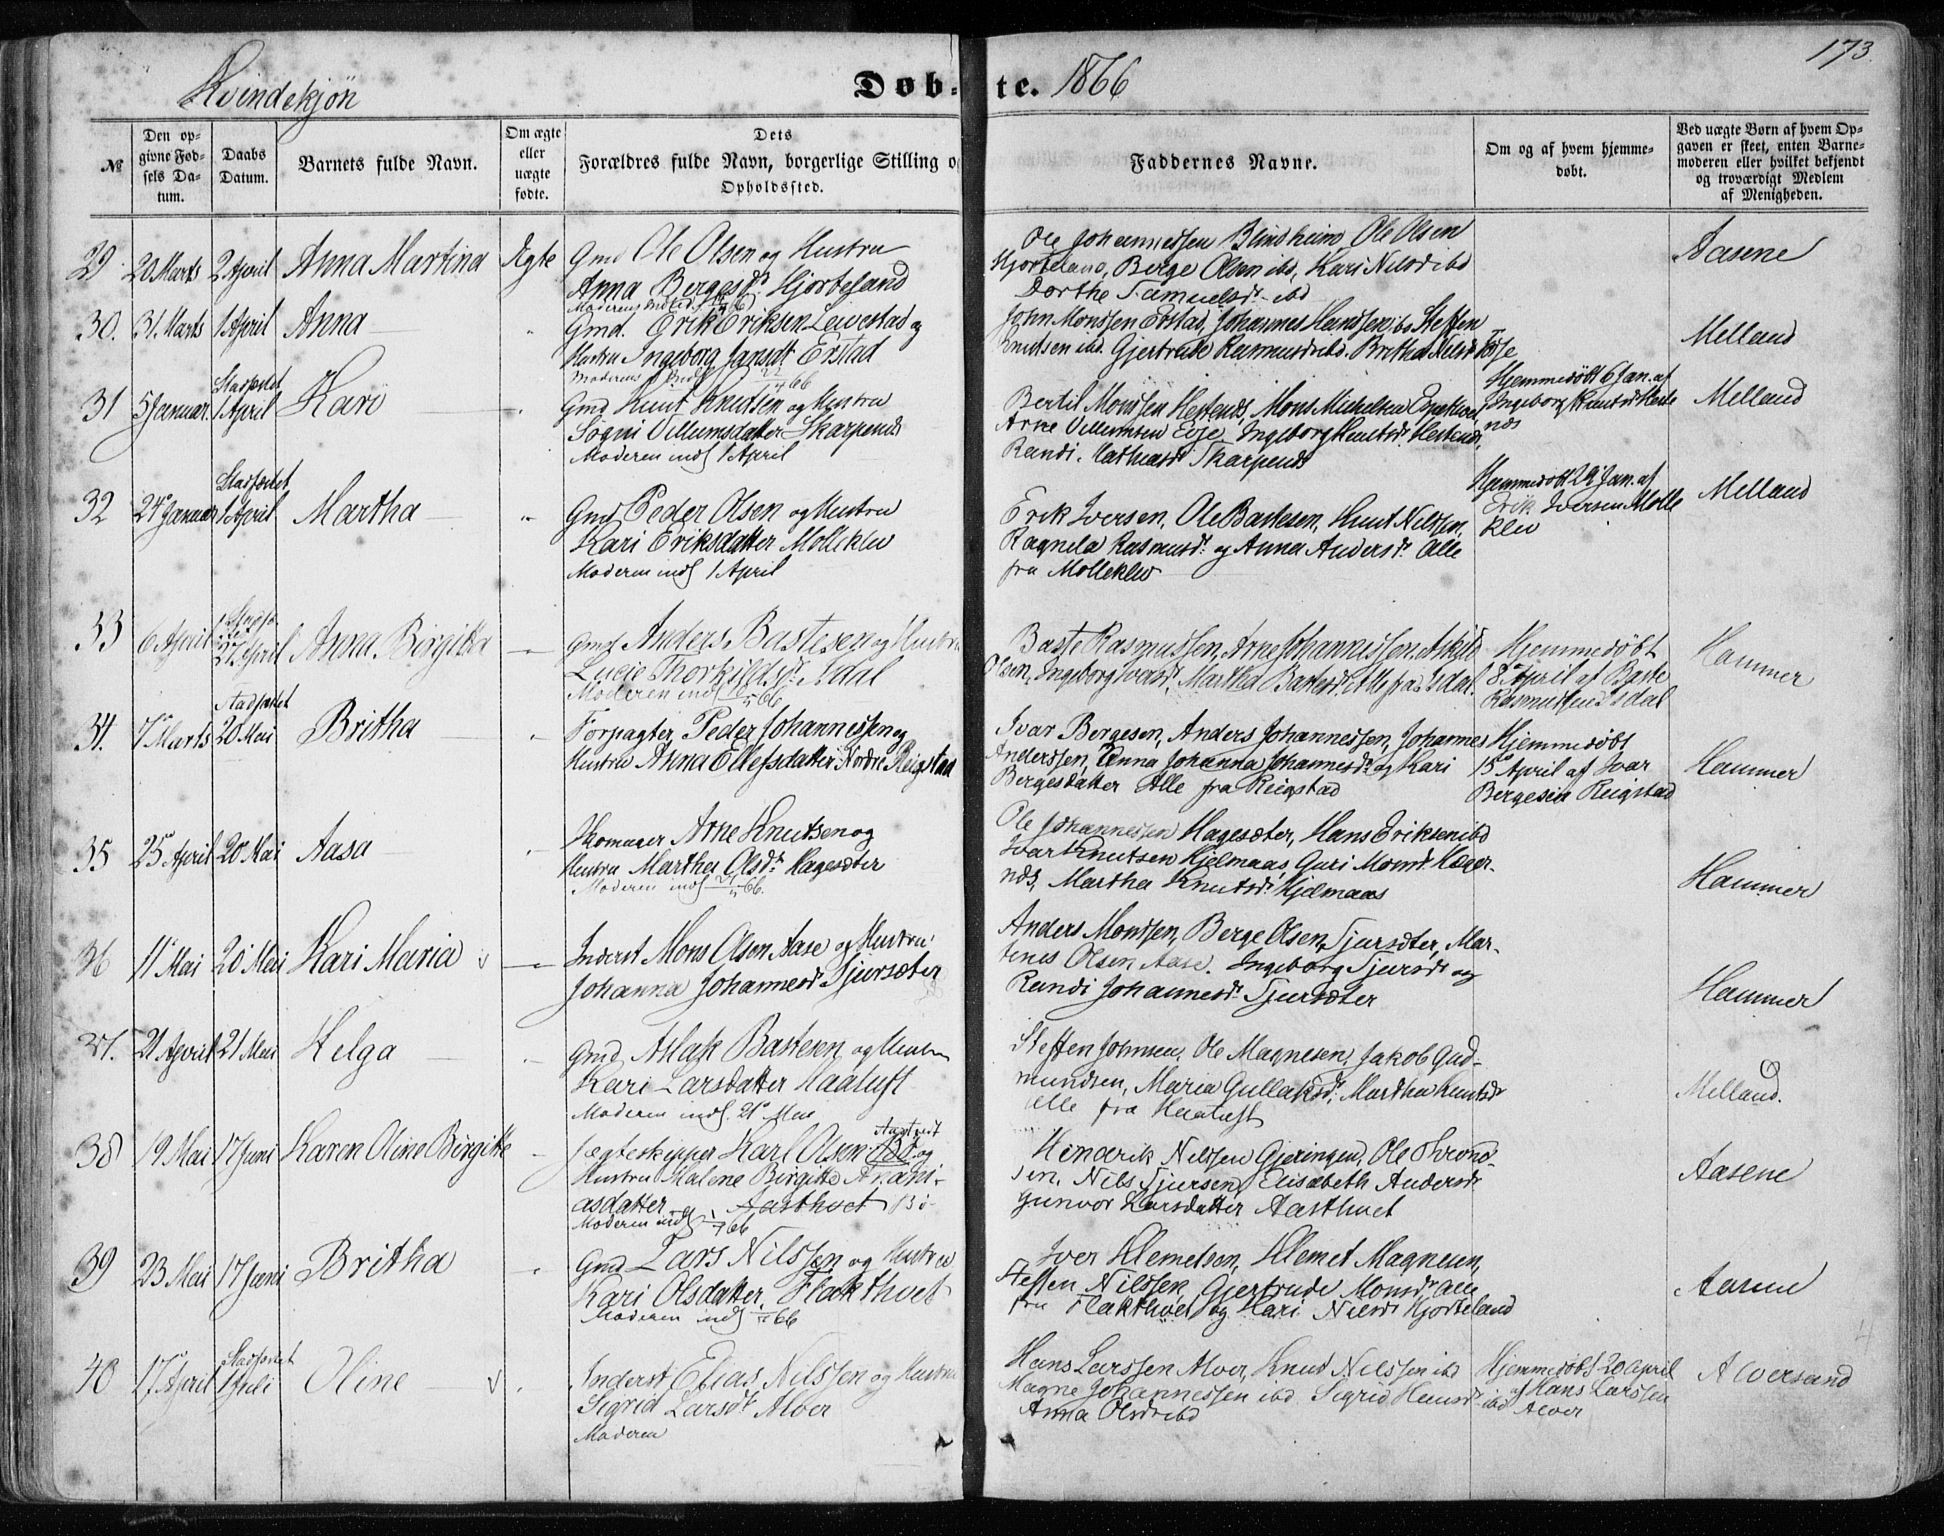 173
Kvindekjön
Døb-te. 1866
№
Den op-
givne Fød-
sels Da-
tum.
Daabs
Datum.
Barnets fulde Navn.
Om ægte
eller
uægte
fødte.
Dets
Forældres fulde Navn, borgerlige Stilling o
Opholdssted.
Faddernes Navne.
Om og af hvem hjemme-
døbt.
Ved uægte Børn af hvem Op-
gaven er skeet, enten Barne-
moderen eller hvilket bekjendt
og troværdigt Medlem
af Menigheden.
29 20 Marts 2 April Anna Martina Ægte
Gmd Ole Olsen og Hustru
Anna Bergesdr Hjorteland
Ole Johannessen Blinsheim, Ole Olsen
Hjorteland, Berge Olsen ibd, Kari Nilsd ibd
Dorthe Samuelsdr ibd
Aasene
30. 31 Marts 1 April Anna
Gmd. Erik Eriksen Levestad og
Hustru Ingeborg Jansdr Erstad
John Monssen Erstad, Johannes Hanssen ibd Steffen
Knutsen ibd. Gjertrude Rasmusdr ibd. Britha Nilsdr
Melland
31 5 Januar. Stadfæstet
1 April Kari
Gmd Knut Knutsen og Hustru
Sogni Villumsdatter Skarpenes
Moderen indl 1 April
Bertil Monssen Hestenes, Mons Michelsen
Arne Villumsen Evje, Ingeborg Knutsdr Hestenes,
Randi Mathiasdr Skarpenes
Hjemmedöbt 6 Jan. af
Ingeborg Knutsdr Heste
nes
Melland
32 24 Januar Stadfæstet
1 April Martha
Gmd Peder Olsen og Hustru
Kari Eriksdatter Mölleklev
Moderen indl 1 April
Erik Iversen, Ole Bastesen, Knut Nilssen,
Ragnela Rasmusdr og Anna Andersdr Alle
fra Mölleklev
Hjemmedöbt 29 Jan. af
Erik Iversen Mölle
klev
Melland
33 6 April 21 April Anna Birgitta
Gmd Anders Bastesen og Hustru
Lucie Thorkildsdr Isdal
Moderen indl
Baste Rasmussen, Arne Johannessen, Askild
Olsen, Ingeborg Ivarsdr, Martha Bastesdr Alle fra Isdal.
Hjemmedöbt
8 April af Baste
Rasmussen Isdal
Hammer
34. 7 Marts Stadfæstet
20 Mai Britha
Forpagter Peder Johannessen og
Hustru Anna Ellefsdatter Nordre Reigstad
Ivar Bergesen, Anders Johannessen, Johannes
Anderssen, Anna Johanna Johannesdr og Kari
Bergesdatter Alle fra Reigstad
Hjemmedöbt
15 April af Ivar
Bergesen Reigstad
Hammer
35 25 April 20 Mai Aasa
Skomager Arne Knutsen og
Hustru Martha Olsdr Hagesæter
Moderen indl 66.
Ole Johannessen Hagesæter, Hans Eriksen ibd
Ivar Knutsen Hjelmaas, Guri Monsdr Hæger-
næs, Martha Knutsdr Hjelmaas
Hammer
36 11 Mai 20 Mai Kari Maria v
Inderst Mons Olsen Aase og Hustru
Johanna Johannesdr Tjursæter
Anders Monssen, Berge Olsen, Tjursæter, Mar-
tenes Olsen Aase. Ingeborg Tjursdr og
Randi Johannesdr Tjursæter
Hammer
37. 21 April 21 Mai Helga
Gmd Aslak Bastesen og Hustru
Kari Larsdatter Haatuft
Moderen indl. 21 Mai
Steffen Johnsen, Ole Magnesen, Jakob Gud-
mundsen, Maria Gullaksdr, Martha Knutsdr
alle fra Haatuft
Melland.
38 19 Mai 17 Juni Karen Oline Birgitte
Jægteskipper Karl Olsen Bö og
Hustru Malene Birgitte Anani-
asdatter Aasthvet Bö
Moderen indl 66
Henderik Nilssen Gjeringen, Ole Thrond-
sen, Nils Tjursen, Elisabeth Andersdr
Gunvor Larsdatter Aasthvet
Aasene
39 23 Mai 17 Juni Britha
Gmd Lars Nilssen og Hustru
Kari Olsdatter, Flakthvet
Moderen indl 66
Iver Klemetsen, Klemet Magnesen,
Steffen Nilssen, Gjertrude Monsdr alle
fra Flakthvet og Kari Nilsdr Hjorteland
Aasene
40 17 April Stadfæstet
1 Juli Oline v
Inderst Elias Nilssen og Hustru
Sigrid Larsdr Alver
Moderen
Hans Larssen Alver, Knud Nilssen ibd
Magne Johannessen ibd Sigrid Hansdr ibd
Anna Olsdr ibd
Hjemmedöbt 20 April
af Hans Larssen
Alver
Alversund